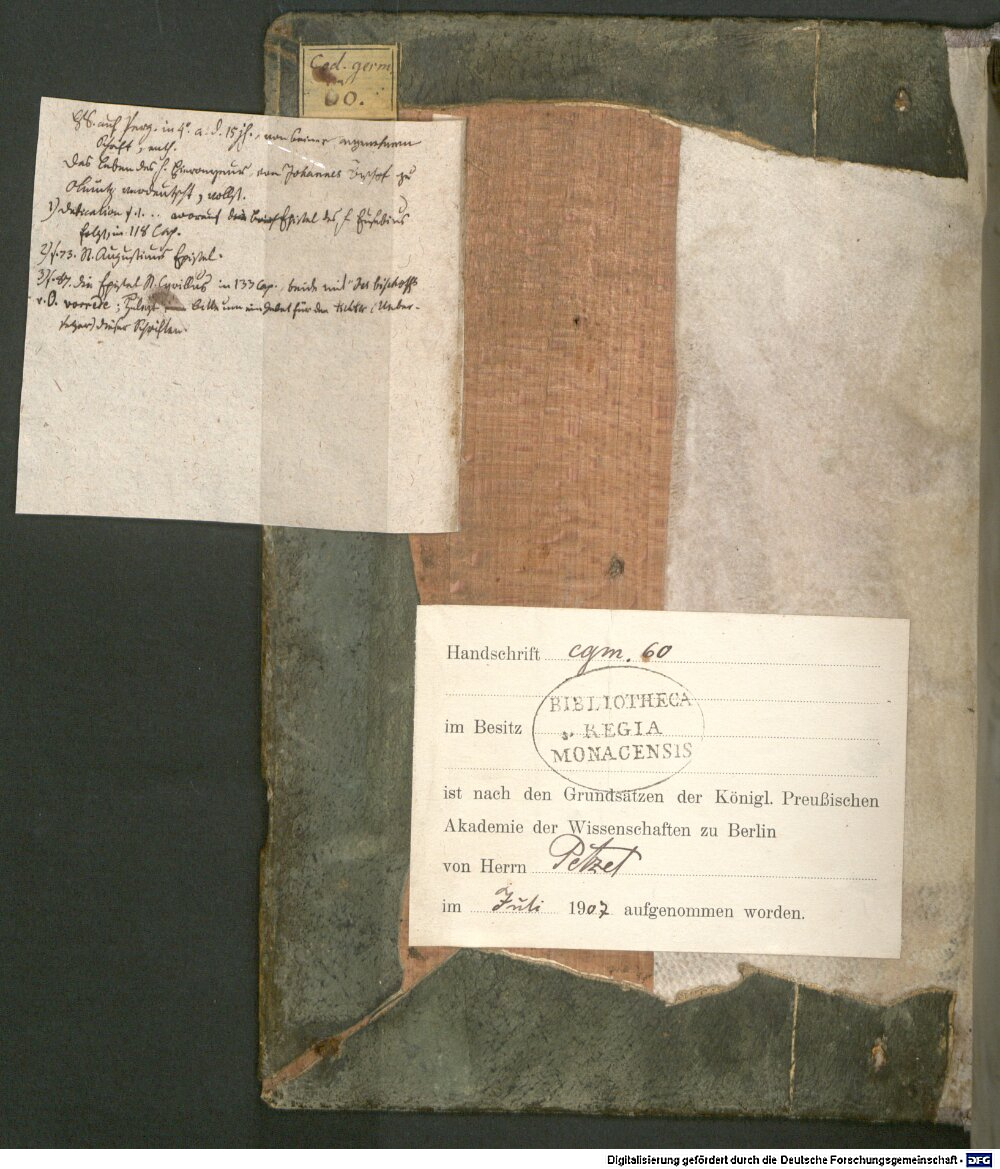 Cod. germ.
60.
HS. auf Perg. in 4°. a. d. 15 jh., von
Schrift, enth.
Das Leben des h. Hieronymus, von Johannes Bischof zu
Olmutz verdeutscht, vollst.
1) Dedication f. 1. .. worauf die Epistel des h. Eusebius
folgt, in 118 Cap.
2) f. 73. St. Augustinus Epistel.
3) f. 87. die Epistel St. Cyrillus in 133 Cap., beide mit des bischoffs
v. O. vorrede; Zuletzt bitte um ein Gebet für den tichter (Ueber-
setzer) dieser Schriften.
Handschrift cgm. 60
BIBLIOTHECA
im Besitz REGIA
MONACENSIS
ist nach den Grundsätzen der Königl. Preußischen
Akademie der Wissenschaften zu Berlin
von Herrn Petzet
im Juli 1907 aufgenommen worden.
Digitalisierung gefördert durch die Deutsche Forschungsgemeinschaft - DFG